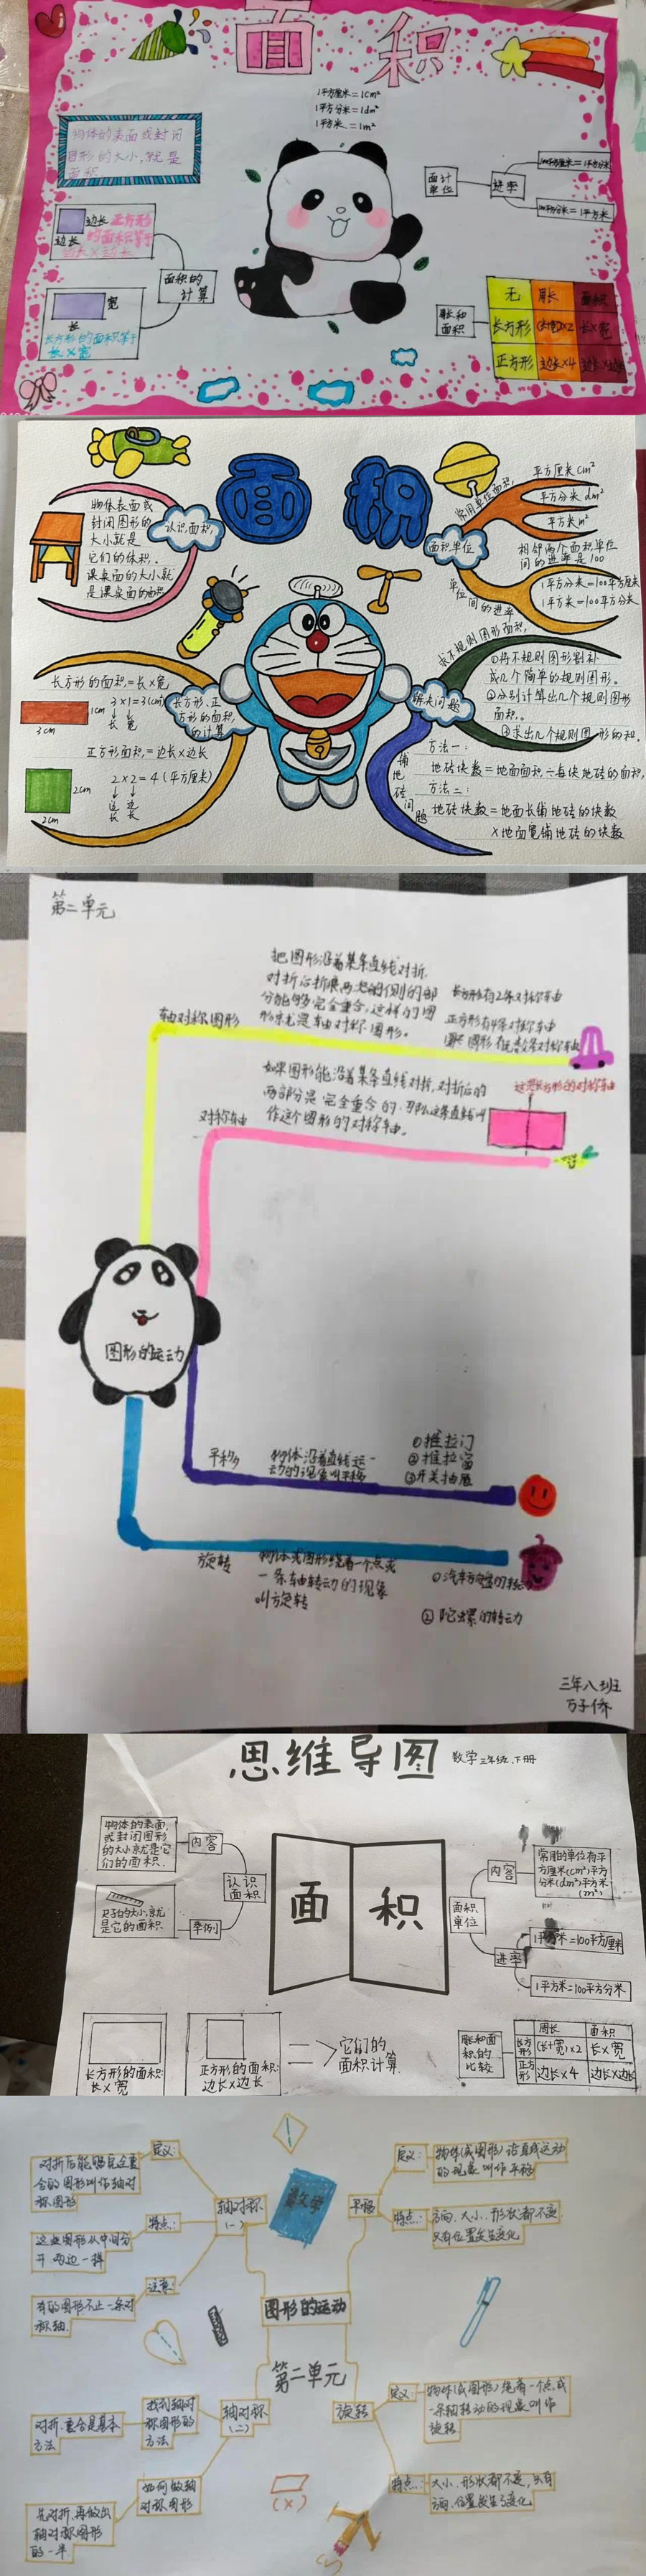 面积
1平方厘米=1cm²
1平方分米=1dm²
1平方米=1m²
物体的表面或封闭
图形的大小,就是
面积.
边长
边长
正方形
的面积等于
边长×边长
宽
长
长方形的面积等于
长×宽
面积的
计算
面计
单位
进率
100平方分米=1平方米
周长和
面积
无 周长 面积
长方形 (长+宽)×2 长×宽
正方形 边长×4 边长×边长
面积
认识面积
物体表面或
封闭图形的
大小就是
它们的体积.
课桌面的大小就
是课桌面的面积
面积单位
常用单位面积
平方厘米cm²
平方分米dm²
平方米m²
相邻两个面积单位
间的进率是100
单位间的进率
1平方分米=100平方厘米
1平方米=100平方分米
长方形、正
方形的面积
的计算
长方形的面积=长×宽
3×1=3(cm²)
长 宽
1cm
3cm
正方形面积=边长×边长
2×2=4(平方厘米)
边长 边长
2cm
2cm
解决问题
求不规则图形面积
①将不规则图形割补
成几个简单的规则图形。
②分别计算出几个规则图形
面积。
③求出几个规则图形的和.
铺地砖问题
方法一:
地砖块数=地面面积÷每块地砖的面积
方法二:
地砖块数=地面长铺地砖的块数
×地面宽铺地砖的块数
第二单元
轴对称图形
把图形沿着某条直线对折,
分能够完全重合,这样的图
形就是轴对称图形。
长方形有2条对称轴
正方形有4条对称轴
对称轴
如果图形能沿着某条直线对折,对折后的
两部分是完全重合的,那么这条直线叫
作这个图形的对称轴。
这是长方形的对称轴
图形的运动
平移
物体沿着直线运
动的现象叫平移
①推拉门
②推拉窗
③开关抽屉
旋转
物体或图形绕着一个点或
一条轴转动的现象
叫旋转
①汽车方向盘的转动
②陀螺的转动
三年八班
万子侨
思维导图
数学三年级.下册
面积
物体的表面,
或封闭图形
的大小就是它
们的面积.
内容
认识
面积
尺子的大小,就
是它的面积.
举例
内容
常用的单位有平
方厘米(cm²)平方
分米(dm²)平方米
(m²)
面积
单位
进率
1平方米=100平方分米
长方形的面积:
长×宽
正方形的面积:
边长×边长
它们的
面积计算.
周长和面
积的
比较
周长 面积
长方形 (长+宽)×2 长×宽
正方形 边长×4 边长×边长
数学
图形的运动
第二单元
轴对称
(一)
定义:
对折后能够完全重
合的图形叫作轴对
称图形
特点:
这些图形从中间分
开,两边一样
注意:
有的图形不止一条对
称轴.
平移
定义:
物体(或图形)沿直线运动
的现象叫作平移
特点:
方向、大小、形状都不变,
只有位置发生变化
轴对称
(二)
找到轴对
称图形的
方法
对折、重合是基本
方法
如何做轴
对称图形
先对折,再做出
轴对称图形
的一半
(×)
旋转
定义:
物体(或图形)绕着一个点或
一条轴转动的现象叫作
旋转
特点:
大小、形状都不变,只有
方向、位置发生了变化